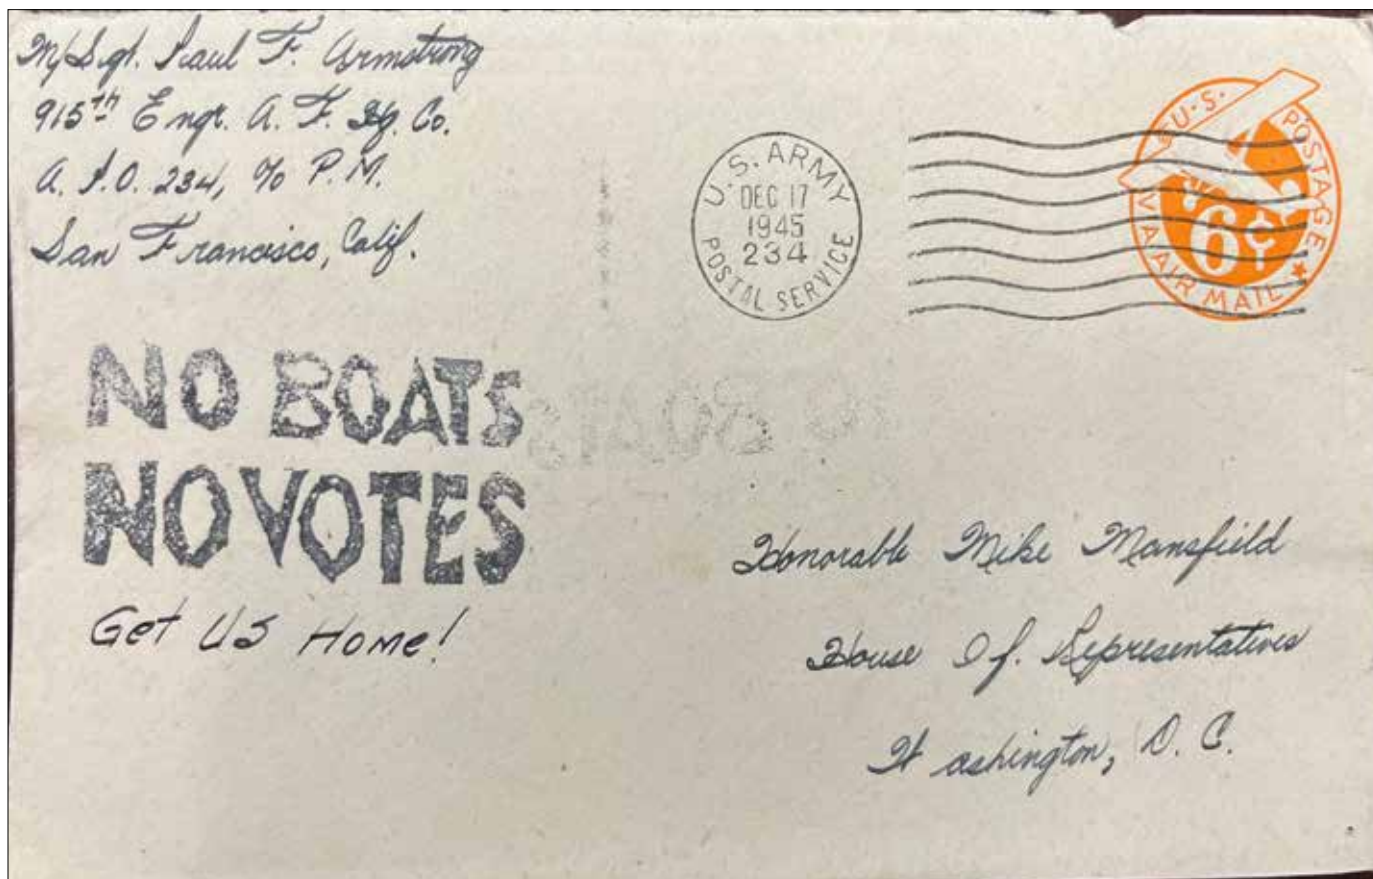 M/Sgt. Paul F. Armstrong
915th Engr. A. F. Hq. Co.
A. P. O. 234, % P. M.
San Francisco, Calif.
U.S. ARMY
DEC 17
1945
234
POSTAL SERVICE
U.S. POSTAGE
6¢
VIA AIR MAIL
NO BOATS
NO VOTES
Get US Home!
Honorable Mike Mansfield
House Of. Representatives
Washington, D. C.